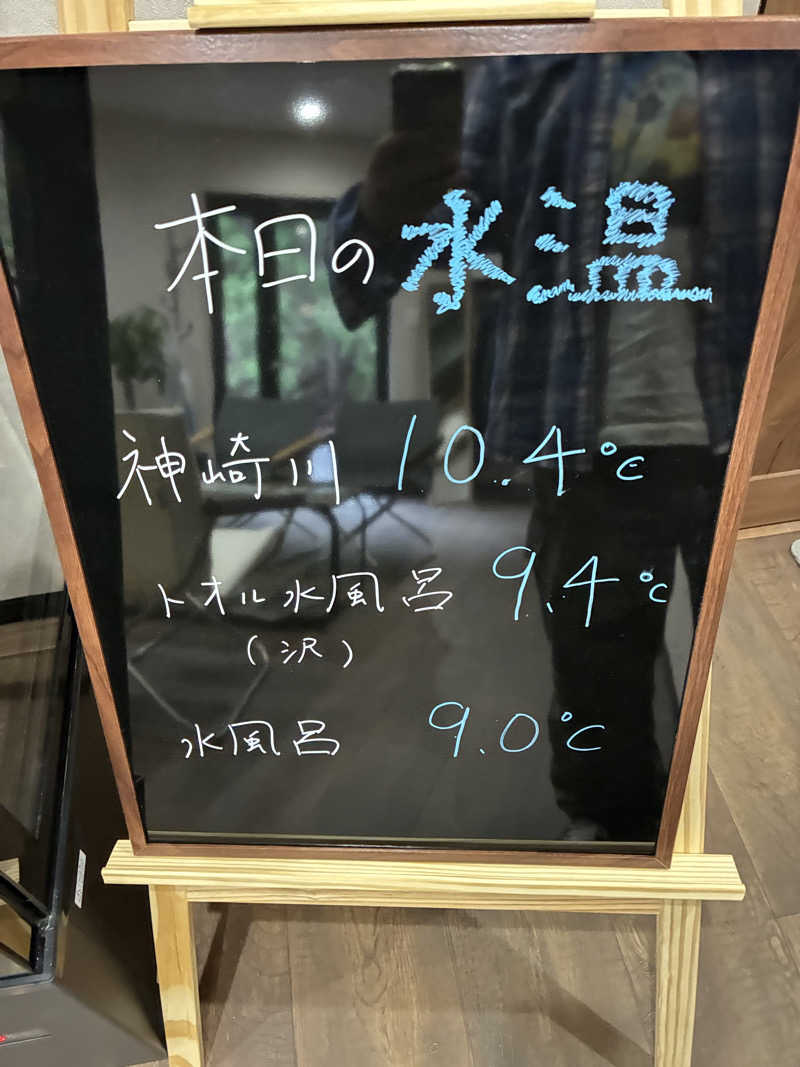 本日の水温
神崎川 10.4℃
トオル水風呂 9.4℃
(沢)
水風呂 9.0℃